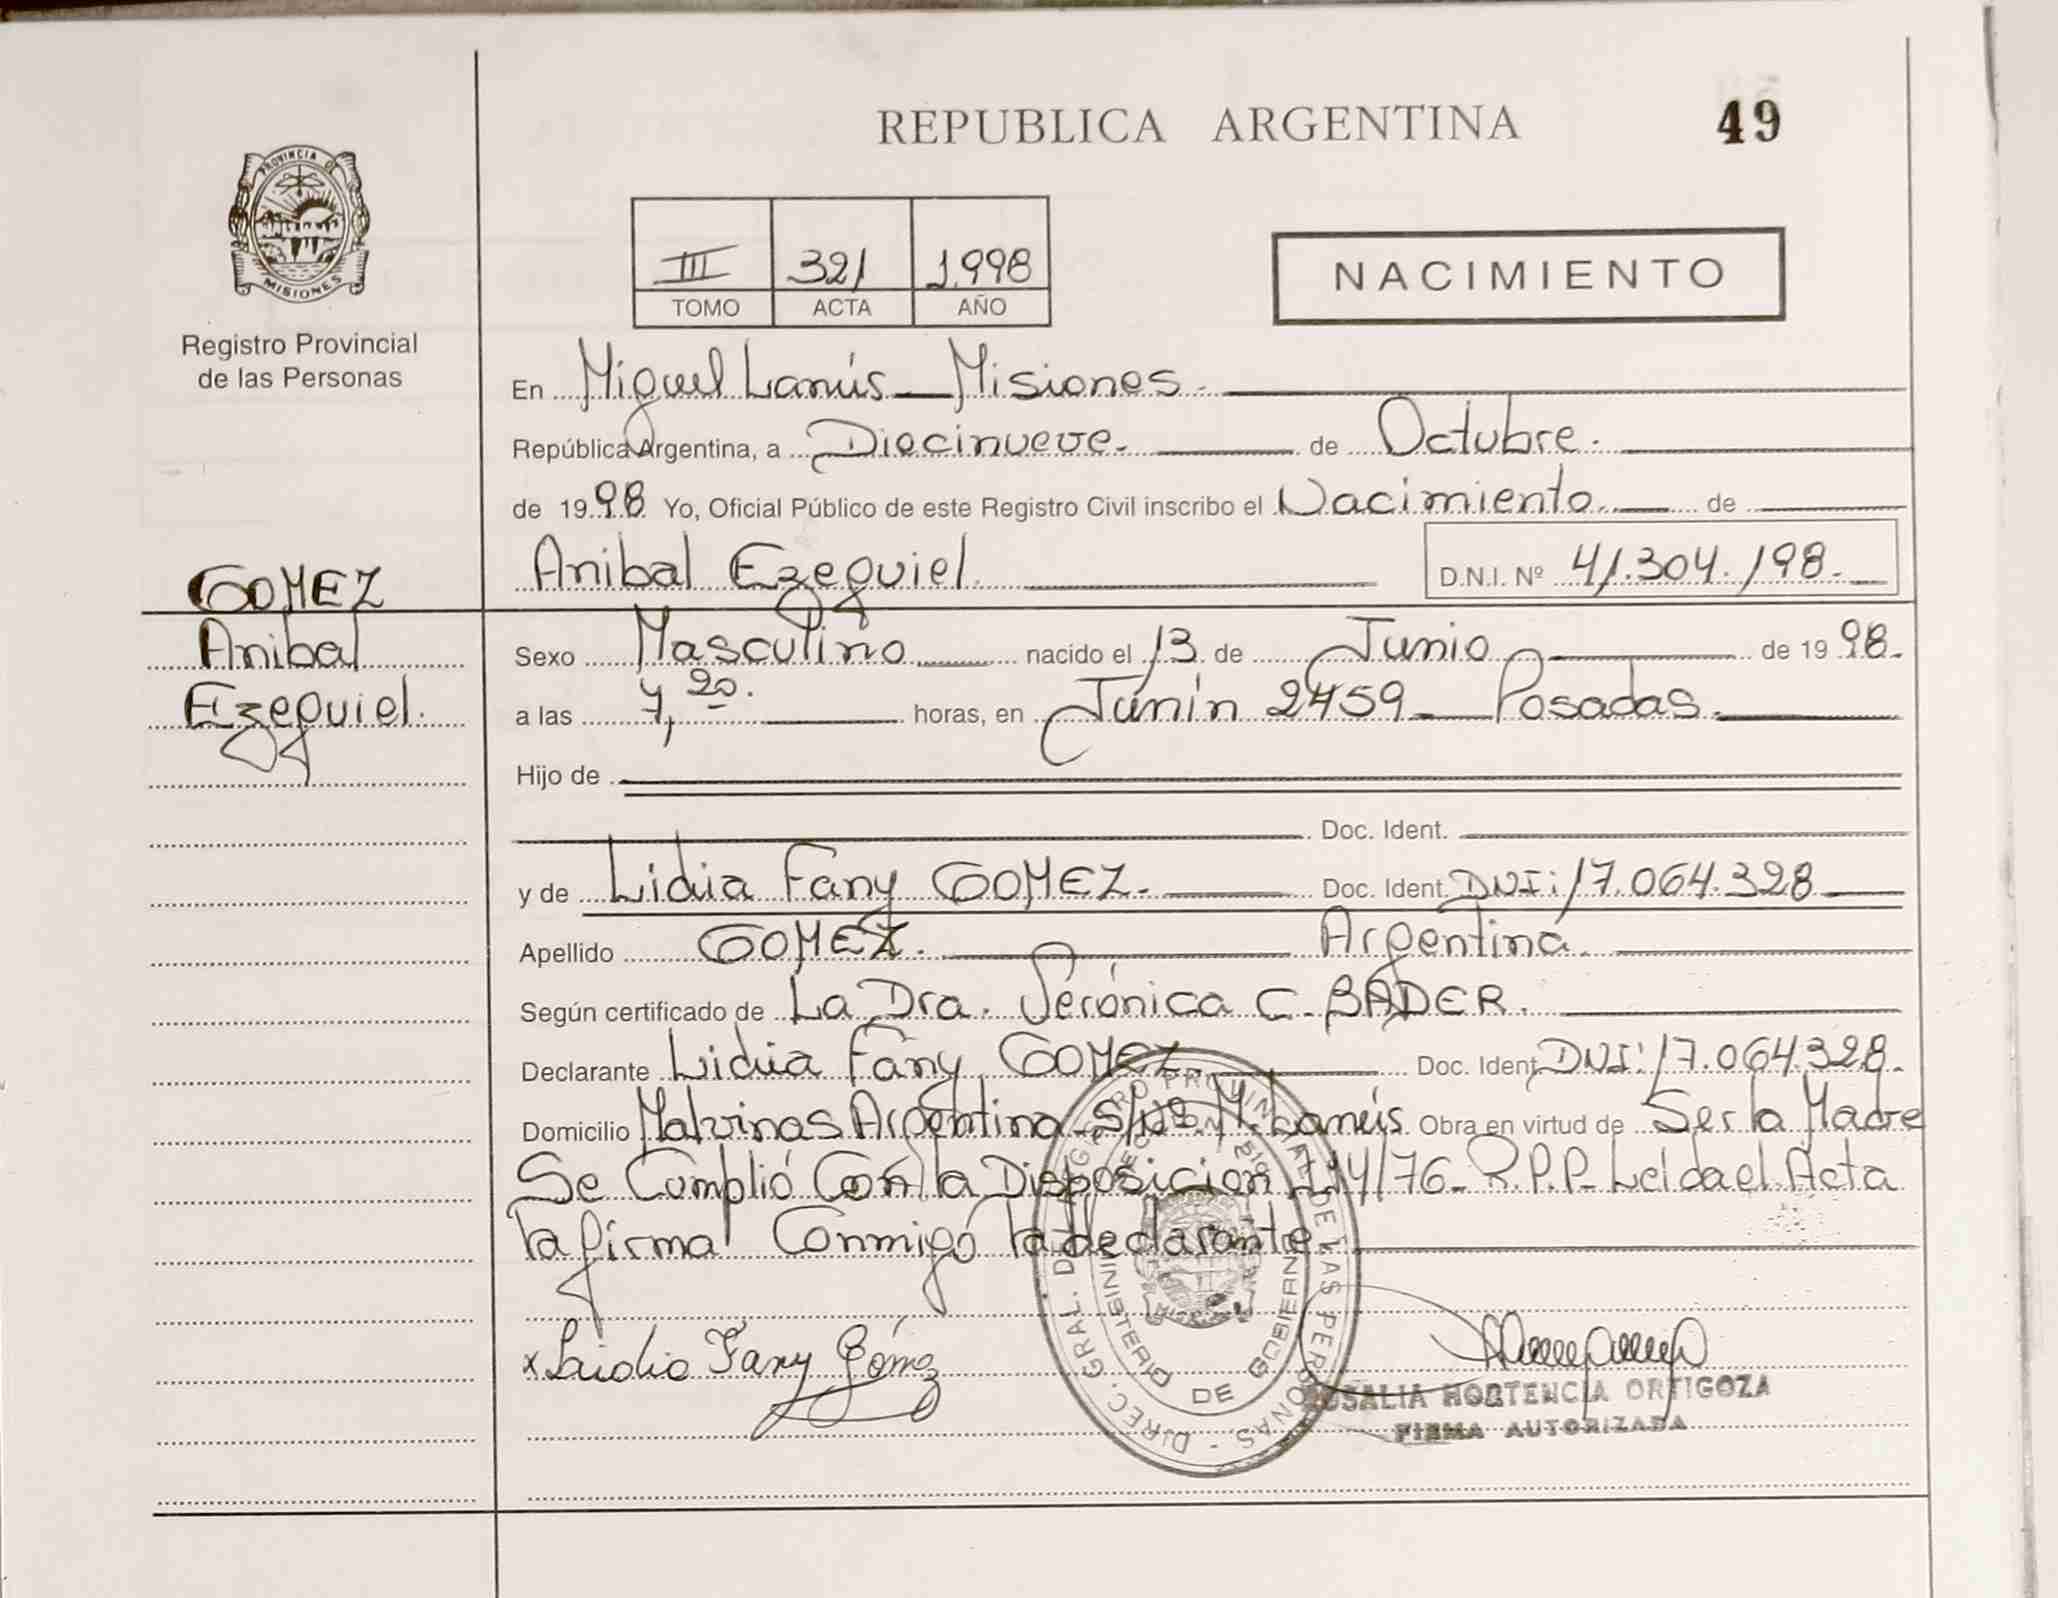 REPUBLICA ARGENTINA 49
PROVINCIA DE
MISIONES
Registro Provincial
de las Personas
III 321 1.998
TOMO ACTA AÑO
NACIMIENTO
En Miguel Lanús - Misiones.
República Argentina, a Diecinueve. de Octubre.
de 1998 Yo, Oficial Público de este Registro Civil inscribo el Nacimiento de
Anibal Ezequiel D.N.I. Nº 41.304.198.
GOMEZ
Anibal
Ezequiel.
Sexo Masculino nacido el 13 de Junio de 1998.
a las 7,20. horas, en Junín 2459 - Posadas.
Hijo de
Doc. Ident.
y de Lidia Fany GOMEZ. Doc. Ident. DNI: 17.064.328
Apellido GOMEZ. Argentina.
Según certificado de La Dra. Verónica C. BADER.
Declarante Lidia Fany GOMEZ. Doc. Ident. DNI: 17.064.328.
Domicilio Malvinas Argentina s/Nº. M. Lanús. Obra en virtud de Ser la Madre
Se Cumplió Con la Disposicion /76 - R.P.P. Leida el Acta
la firma Conmigo la declarante.
x Lidia Fany Gómez
DIREC. GRAL. DEL REGISTRO PROVINCIAL DE LAS PERSONAS
MINISTERIO DE GOBIERNO
ROSALIA HORTENCIA ORTIGOZA
FIRMA AUTORIZADA